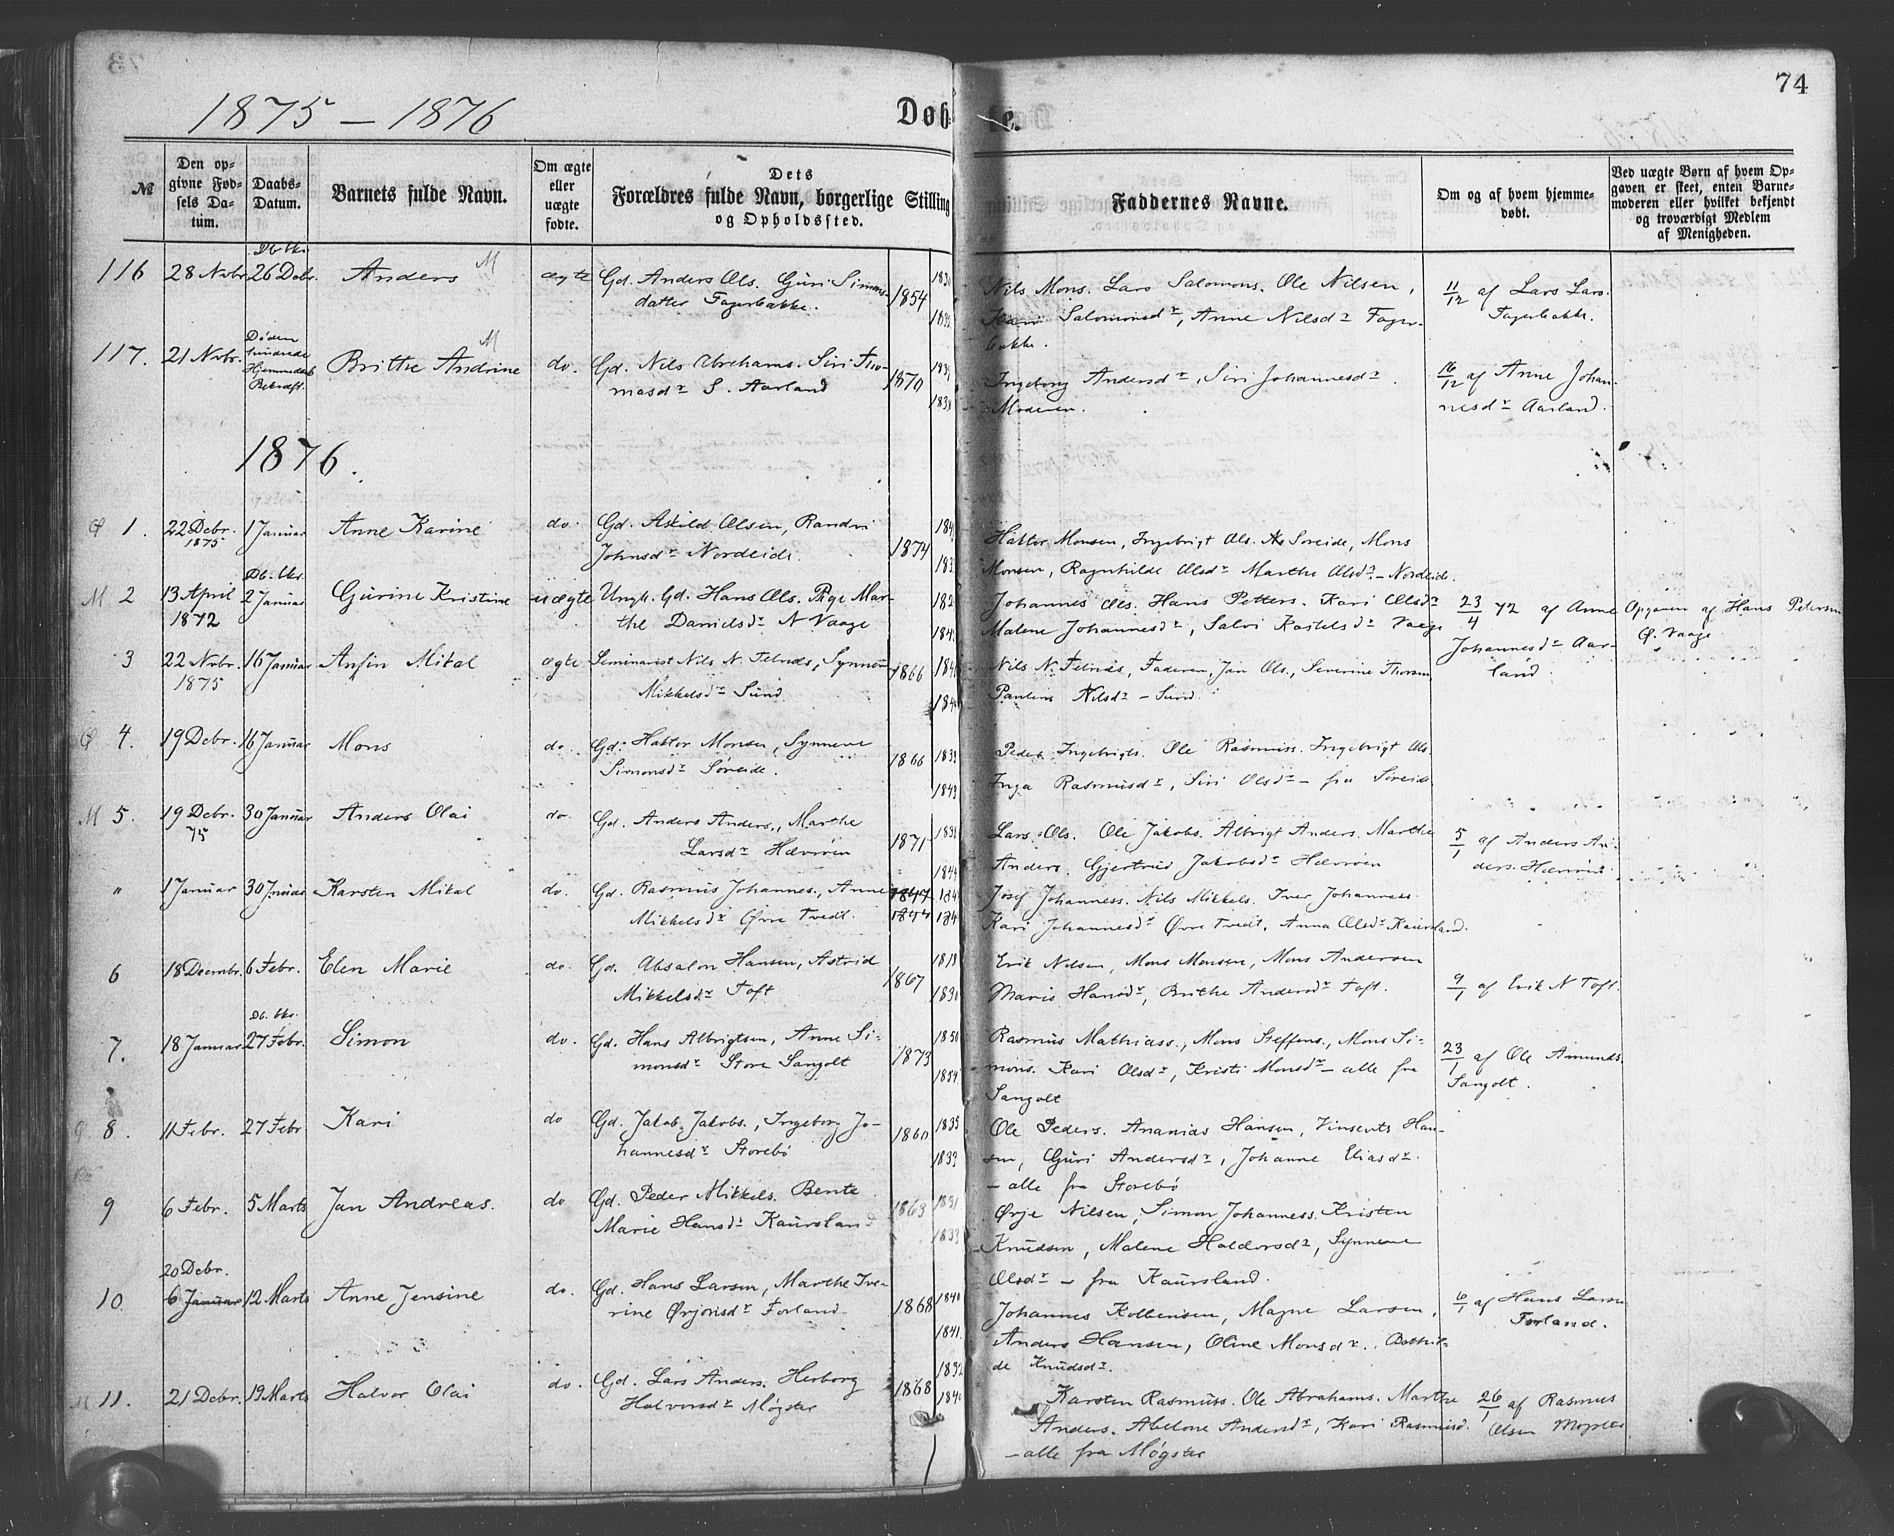 74
1875 – 1876
Døbte.
№
Den opgivne Fødsels Datum.
Daabs-Datum.
Barnets fulde Navn.
Om ægte eller uægte fødte.
Dets Forældres fulde Navn, borgerlige Stilling og Opholdssted.
Faddernes Navne.
Om og af hvem hjemmedøbt.
Ved uægte Børn af hvem Opgaven er skeet, enten Barnemoderen eller hvilket bekjendt og troværdigt Medlem af Menigheden.
116 28 Nvbr 26 Dcbr. Anders M ægte Gd. Anders Ols. Guri Simons- 1854
datter Fagerbakke.
Nils Mons. Lars Salomons. Ole Nilsen,
Kari Salomonsdr, Anne Nilsdr Fager-
bakke.
11/12 af Lars Lars.
Fagerbakke.
117. 21 Nvbr. Døden Hjemmedaab Brithe Andrine M do. Gd. Nils Abrahams. Siri Tho- 1870
masdr S. Aarland
Ingeborg Andersdr, Siri Johannesdr.
Moderen.
16/12 af Anne Johan-
nesdr Aarland.
1876.
1. 22 Debr. 1875 1 Januar Anne Karine do. Gd. Askild Olsen, Randvi 1874
Johnsdr Nordeide.
Haktor Monsen, Ingebrigt Ols. Søreide, Mons
Monsen, Ragnhilde Olsdr Marthe Olsdr – Nordeide.
M 2 13 April 1872 2 Januar Gurine Kristine uægte Ungk. Gd. Hans Ols. Pige Mar-
the Danielsdr N Vaage
Johannes Ols. Hans Petters. Kari Olsdr
Malene Johannesdr, Salvi Kastelsdr Vaage
23/4 72 af Anne
Johannesdr Aar-
land.
Opgaven af Hans Petersen
Ø. Vaage
3 22 Nvbr. 1875 16 Januar Anfin Mikal ægte Seminarist Nils N. Telnæs, Synnøve 1866
Mikkelsdr Sund
Nils N. Telnæs, Faderen, Jan Ols., Severine Thorsen,
Pauline Nilsdr – Sund.
4. 19 Debr. 16 Januar Mons do. Gd. Haktor Monsen, Synneve 1866
Simonsdr Søreide.
1839
1843
Peder Ingebrigts. Ole Rasmuss. Ingebrigt Ols.
Inga Rasmusdr, Siri Olsdr – fra Søreide
M 5. 19 Debr. 75 30 Januar Anders Olai do Gd. Anders Anders., Marthe 1871
Larsdr Hævrøen
Lars Ols. Ole Jakobs. Albrigt Anders. Marthe
Anders. Gjertrud Jakobsdr Hævrøen
5/1 af Anders An-
ders. Hævrøen
" 1 Januar 30 Januar Karsten Mikal do. Gd. Rasmus Johannes., Anne 1847
Mikkelsdr Øvre Tvedt. 1844
Josef Johanness. Nils Mikkels. Iver Johanness.
Kari Johannesdr Øvre Tvedt, Anna Olsdr Kaursland.
6 18 Decmbr. 6 Febr. Elen Marie do. Gd. Absalon Hansen, Astrid 1867
Mikkelsdr Toft
Erik Nilsen, Mons Monsen, Mons Andersen
Maris Hansdr, Brithe Andersdr Toft.
9/1 af Erik N Toft.
7. 18 Januar 27 Febr. Simon do. Gd. Hans Albrigtsen, Anne Si- 1873
monsdr Store Sangolt
1850
1854
Rasmus Mathiass., Mons Steffens., Mons Si-
mons. Kari Olsdr, Kristi Monsdr – alle fra
Sangolt
23/1 af Ole Amunds.
Sangolt.
8. 11 Febr. 27 Febr Kari do Gd. Jakob Jakobs., Ingeborg Jo- 1860
hannesdr Storebø
1835
1839
Ole Peders. Ananias Hansen, Vinsents Han-
sen, Guri Andersdr, Johanne Eliasdr.
– alle fra Storebø
9 6 Febr. 5 Marts Jan Andreas. do Gd. Peder Mikkels. Bente 1863
Marie Hansdr Kaursland
1831
1839
Ørje Nilsen, Simon Johanness. Kristen
Knudsen, Malene Haldorsdr, Synneve
Olsdr – fra Kaursland.
10. 20 Debr. 6 Januar 12 Marts Anne Jensine do. Gd. Hans Larsen, Marthe Ive- 1868
rine Ørjansdr Forland.
1840
1841.
Johannes Kolbensen, Magne Larsen,
Anders Hansen, Oline Monsdr. Bothil-
de Knudsdr.
6/1 af Hans Larsen
Forland.
M 11. 21 Debr. 19 Marts Halvor Olai do. Gd. Lars Anders. Herborg 1868
Halvorsdr Møgster
1832
Karsten Rasmuss. Ole Abrahams. Marthe
Anders. Abelone Andersdr, Kari Rasmusd.
– alle fra Møgster
26/1 af Rasmus
Olsen Møgster